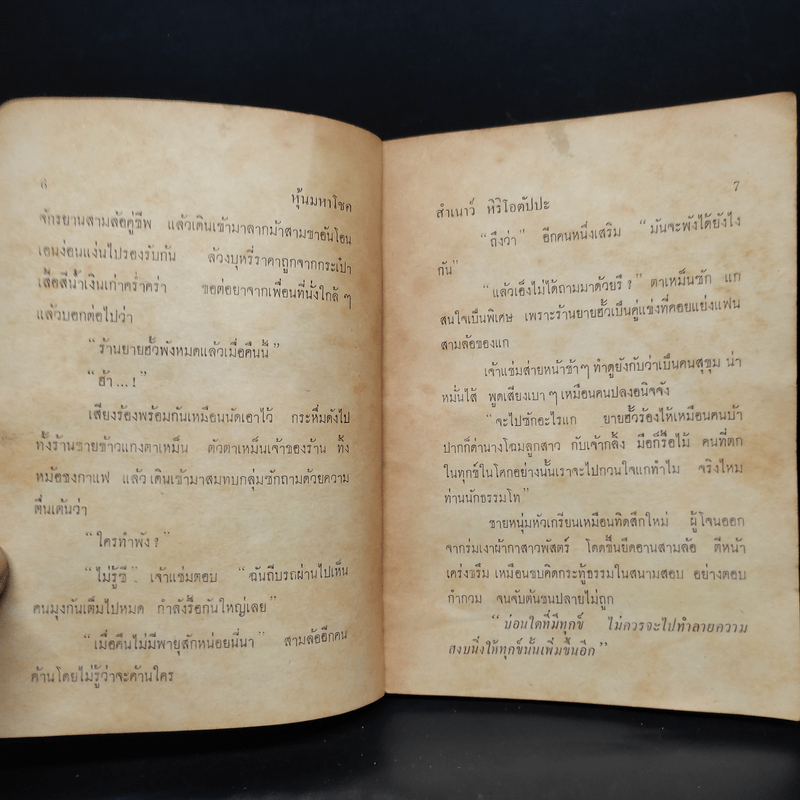 6
หุ้นมหาโชค
จักรยานสามล้อคู่ชีพ แล้วเดินเข้ามาลากม้าสามขาอันโอน
เอนง่อนแง่นไปรองรับก้น ล้วงบุหรี่ราคาถูกจากกระเป๋า
เสื้อสีน้ำเงินเก่าคร่ำคร่า ขอต่อยาจากเพื่อนที่นั่งใกล้ ๆ
แล้วบอกต่อไปว่า
“ร้านยายฮั้วพังหมดแล้วเมื่อคืนนี้”
“ฮ้า...!”
เสียงร้องพร้อมกันเหมือนนัดเอาไว้ กระหึ่มดังไป
ทั้งร้านขายข้าวแกงตาเหม็น ตัวตาเหม็นเจ้าของร้าน ทิ้ง
หม้อชงกาแฟ แล้วเดินเข้ามาสมทบกลุ่มซักถามด้วยความ
ตื่นเต้นว่า
“ใครทำพัง?”
“ไม่รู้ซี” เจ้าแช่มตอบ “ฉันถีบรถผ่านไปเห็น
คนมุงกันเต็มไปหมด กำลังรื้อกันใหญ่เลย”
“เมื่อคืนไม่มีพายุสักหน่อยนี่นา” สามล้ออีกคน
ค้านโดยไม่รู้ว่าจะค้านใคร
สำเนาว์ หิริโอตัปปะ
7
“ถึงว่า” อีกคนหนึ่งเสริม “มันจะพังได้ยังไง
กัน”
“แล้วเอ็งไม่ได้ถามมาด้วยรึ?” ตาเหม็นซัก แก
สนใจเป็นพิเศษ เพราะร้านยายฮั้วเป็นคู่แข่งที่คอยแย่งแฟน
สามล้อของแก
เจ้าแช่มส่ายหน้าช้าๆ ทำดูยังกับว่าเป็นคนสุขุม น่า
หมั่นไส้ พูดเสียงเบา ๆ เหมือนคนปลงอนิจจัง
“จะไปซักอะไรแก ยายฮั้วร้องไห้เหมือนคนบ้า
ปากก็ด่านางโฉมลูกสาว กับเจ้ากลิ้ง มือก็รื้อไม้ คนที่ตก
ในทุกข์ในโศกอย่างนั้นเราจะไปกวนใจแกทำไม จริงไหม
ท่านนักธรรมโท”
ชายหนุ่มหัวเกรียนเหมือนทิดสึกใหม่ ผู้โจนออก
จากร่มเงาผ้ากาสาวพัสตร์ โดดขึ้นยึดอานสามล้อ ตีหน้า
เคร่งขรึม เหมือนขบคิดกระทู้ธรรมในสนามสอบ อย่างตอบ
กำกวม จนจับต้นชนปลายไม่ถูก
“บ่อนใดที่มีทุกข์ ไม่ควรจะไปทำลายความ
สงบนิ่งให้ทุกข์นั้นเพิ่มขึ้นอีก”